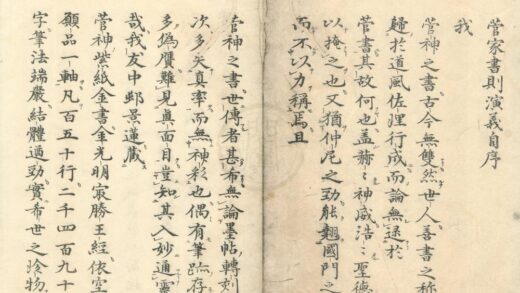 菅家書則演義自序
我
菅神之書古今無雙然世人善書之称
歸於道風佐理行成而論無逮於
菅書其故何也盖赫々神威浩々聖德
以掩之也又猶仲尼之勁能翹國門之
而不以力稱焉且
菅神之書世傳者甚布無論墨帖轉刻
次多失真率而無神彩也偶有筆跡存
多偽贋難見真面目豈知其入妙通靈
哉我友中邨景蓮藏
菅神紫紙金書金光明寂勝王經依空
顯品一軸凡百五十行二千四百九十
字筆法端嚴結體遒勁實希世之珍物